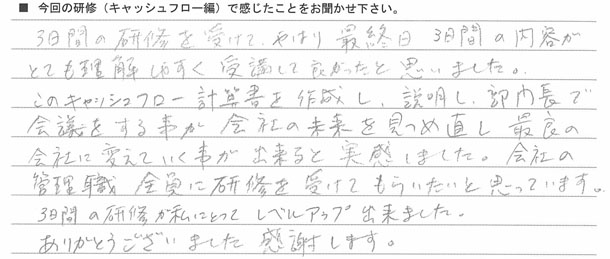 ■ 今回の研修（キャッシュフロー編）で感じたことをお聞かせ下さい。
3日間の研修を受けて、やはり最終日3日間の内容が
とても理解しやすく受講して良かったと思いました。
このキャッシュフロー計算書を作成し、説明し、部内長で
会議をする事が会社の未来を見つめ直し最良の
会社に変えていく事が出来ると実感しました。会社の
管理職全員に研修を受けてもらいたいと思っています。
3日間の研修が私にとってレベルアップ出来ました。
ありがとうございました感謝します。